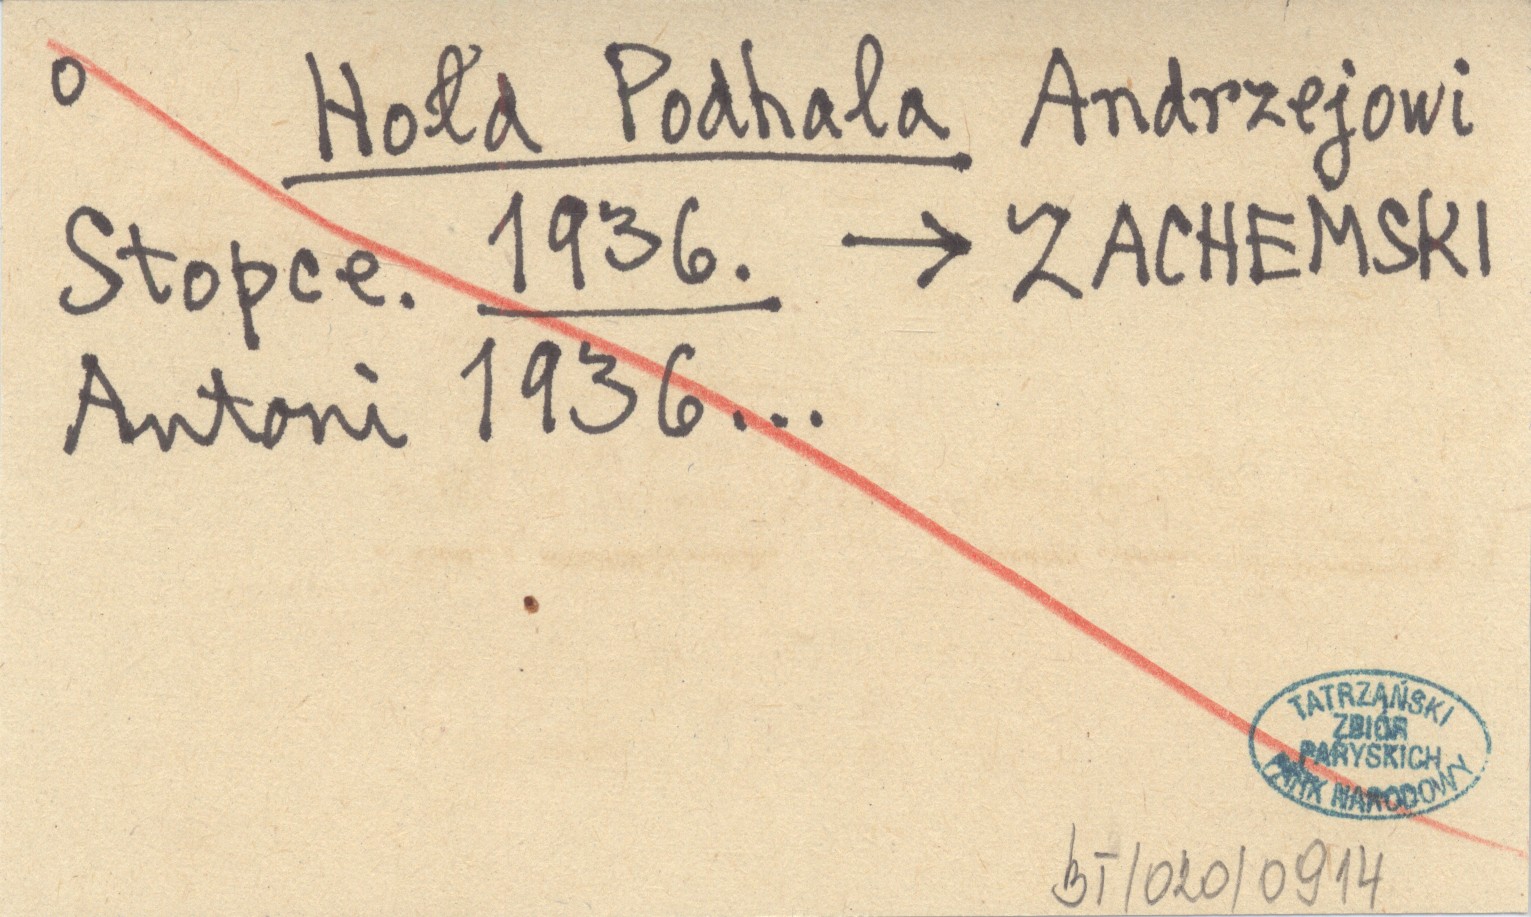 o Hołd Podhala Andrzejowi
Stopce. 1936. → ZACHEMSKI
Antoni 1936...
TATRZAŃSKI
ZBIÓR
PARYSKICH
PARK NARODOWY
BT/020/0914